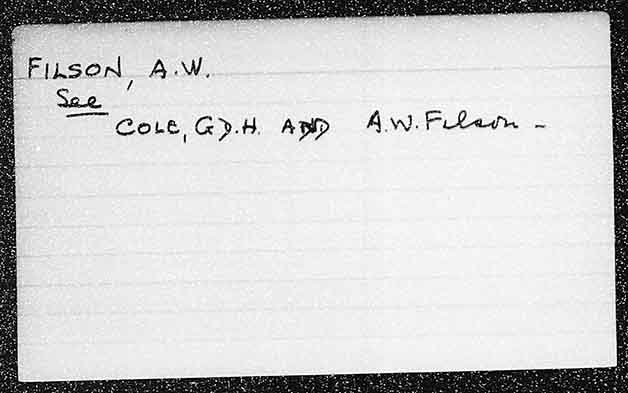 FILSON, A.W.
See
COLE, G.D.H. AND A.W. Filson -